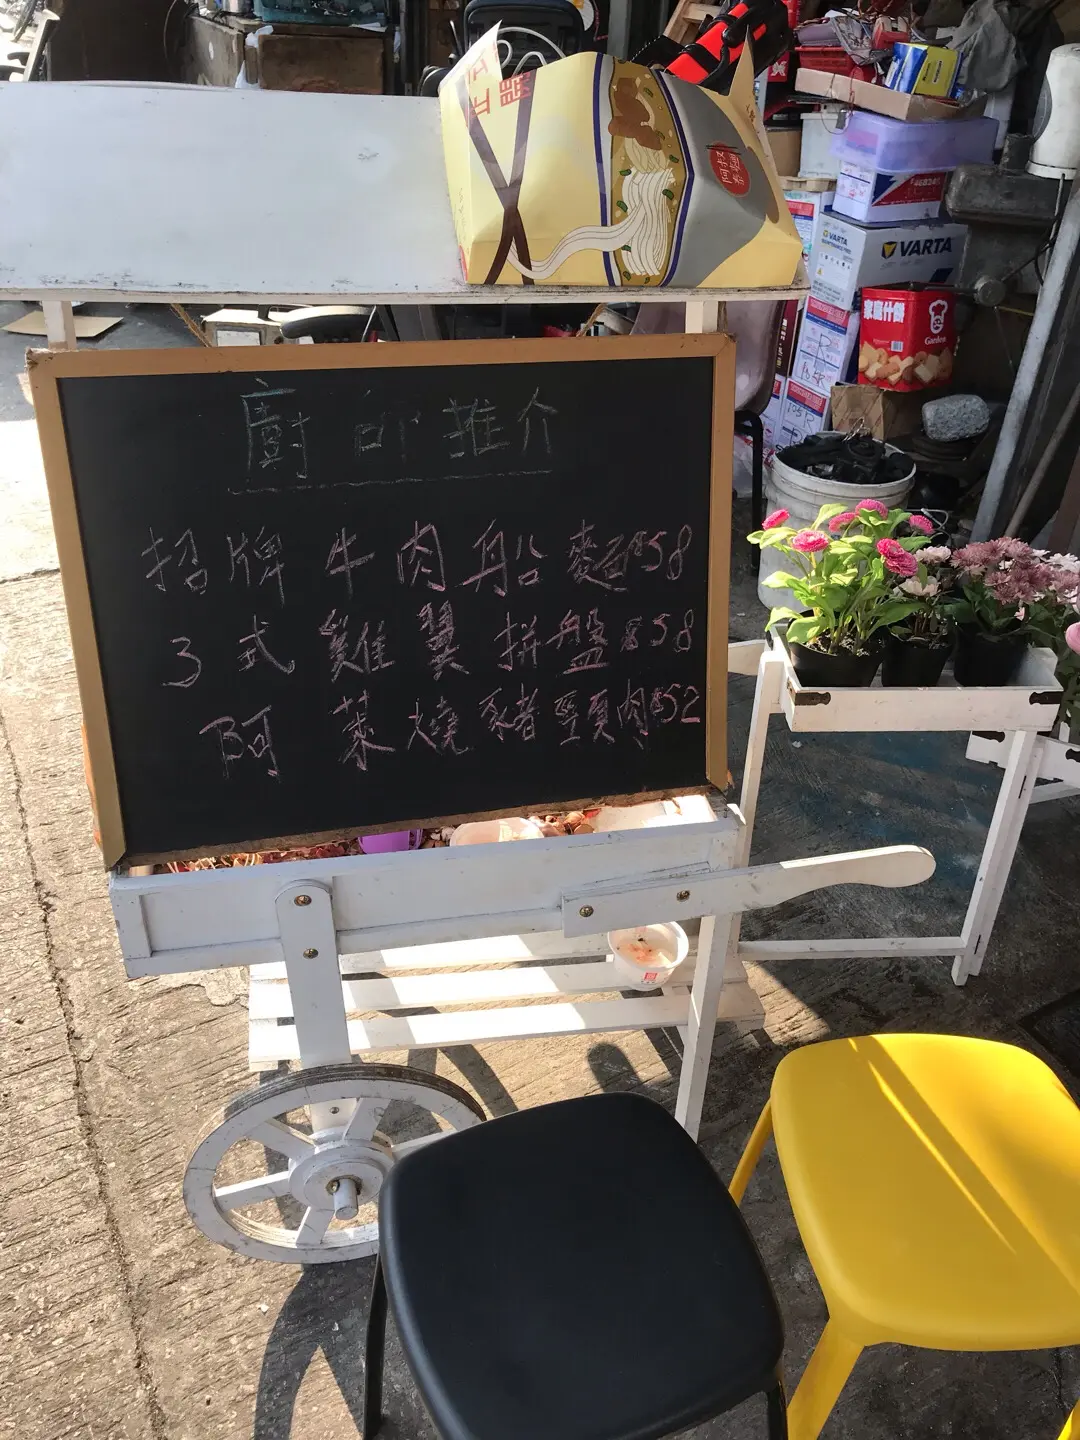 阿叔
泰麵
VARTA
VARTA
家庭什餅
Garden
廚師推介
招牌牛肉船麵$58
3式雞翼拼盤$58
阿葉燒豬頸肉$52